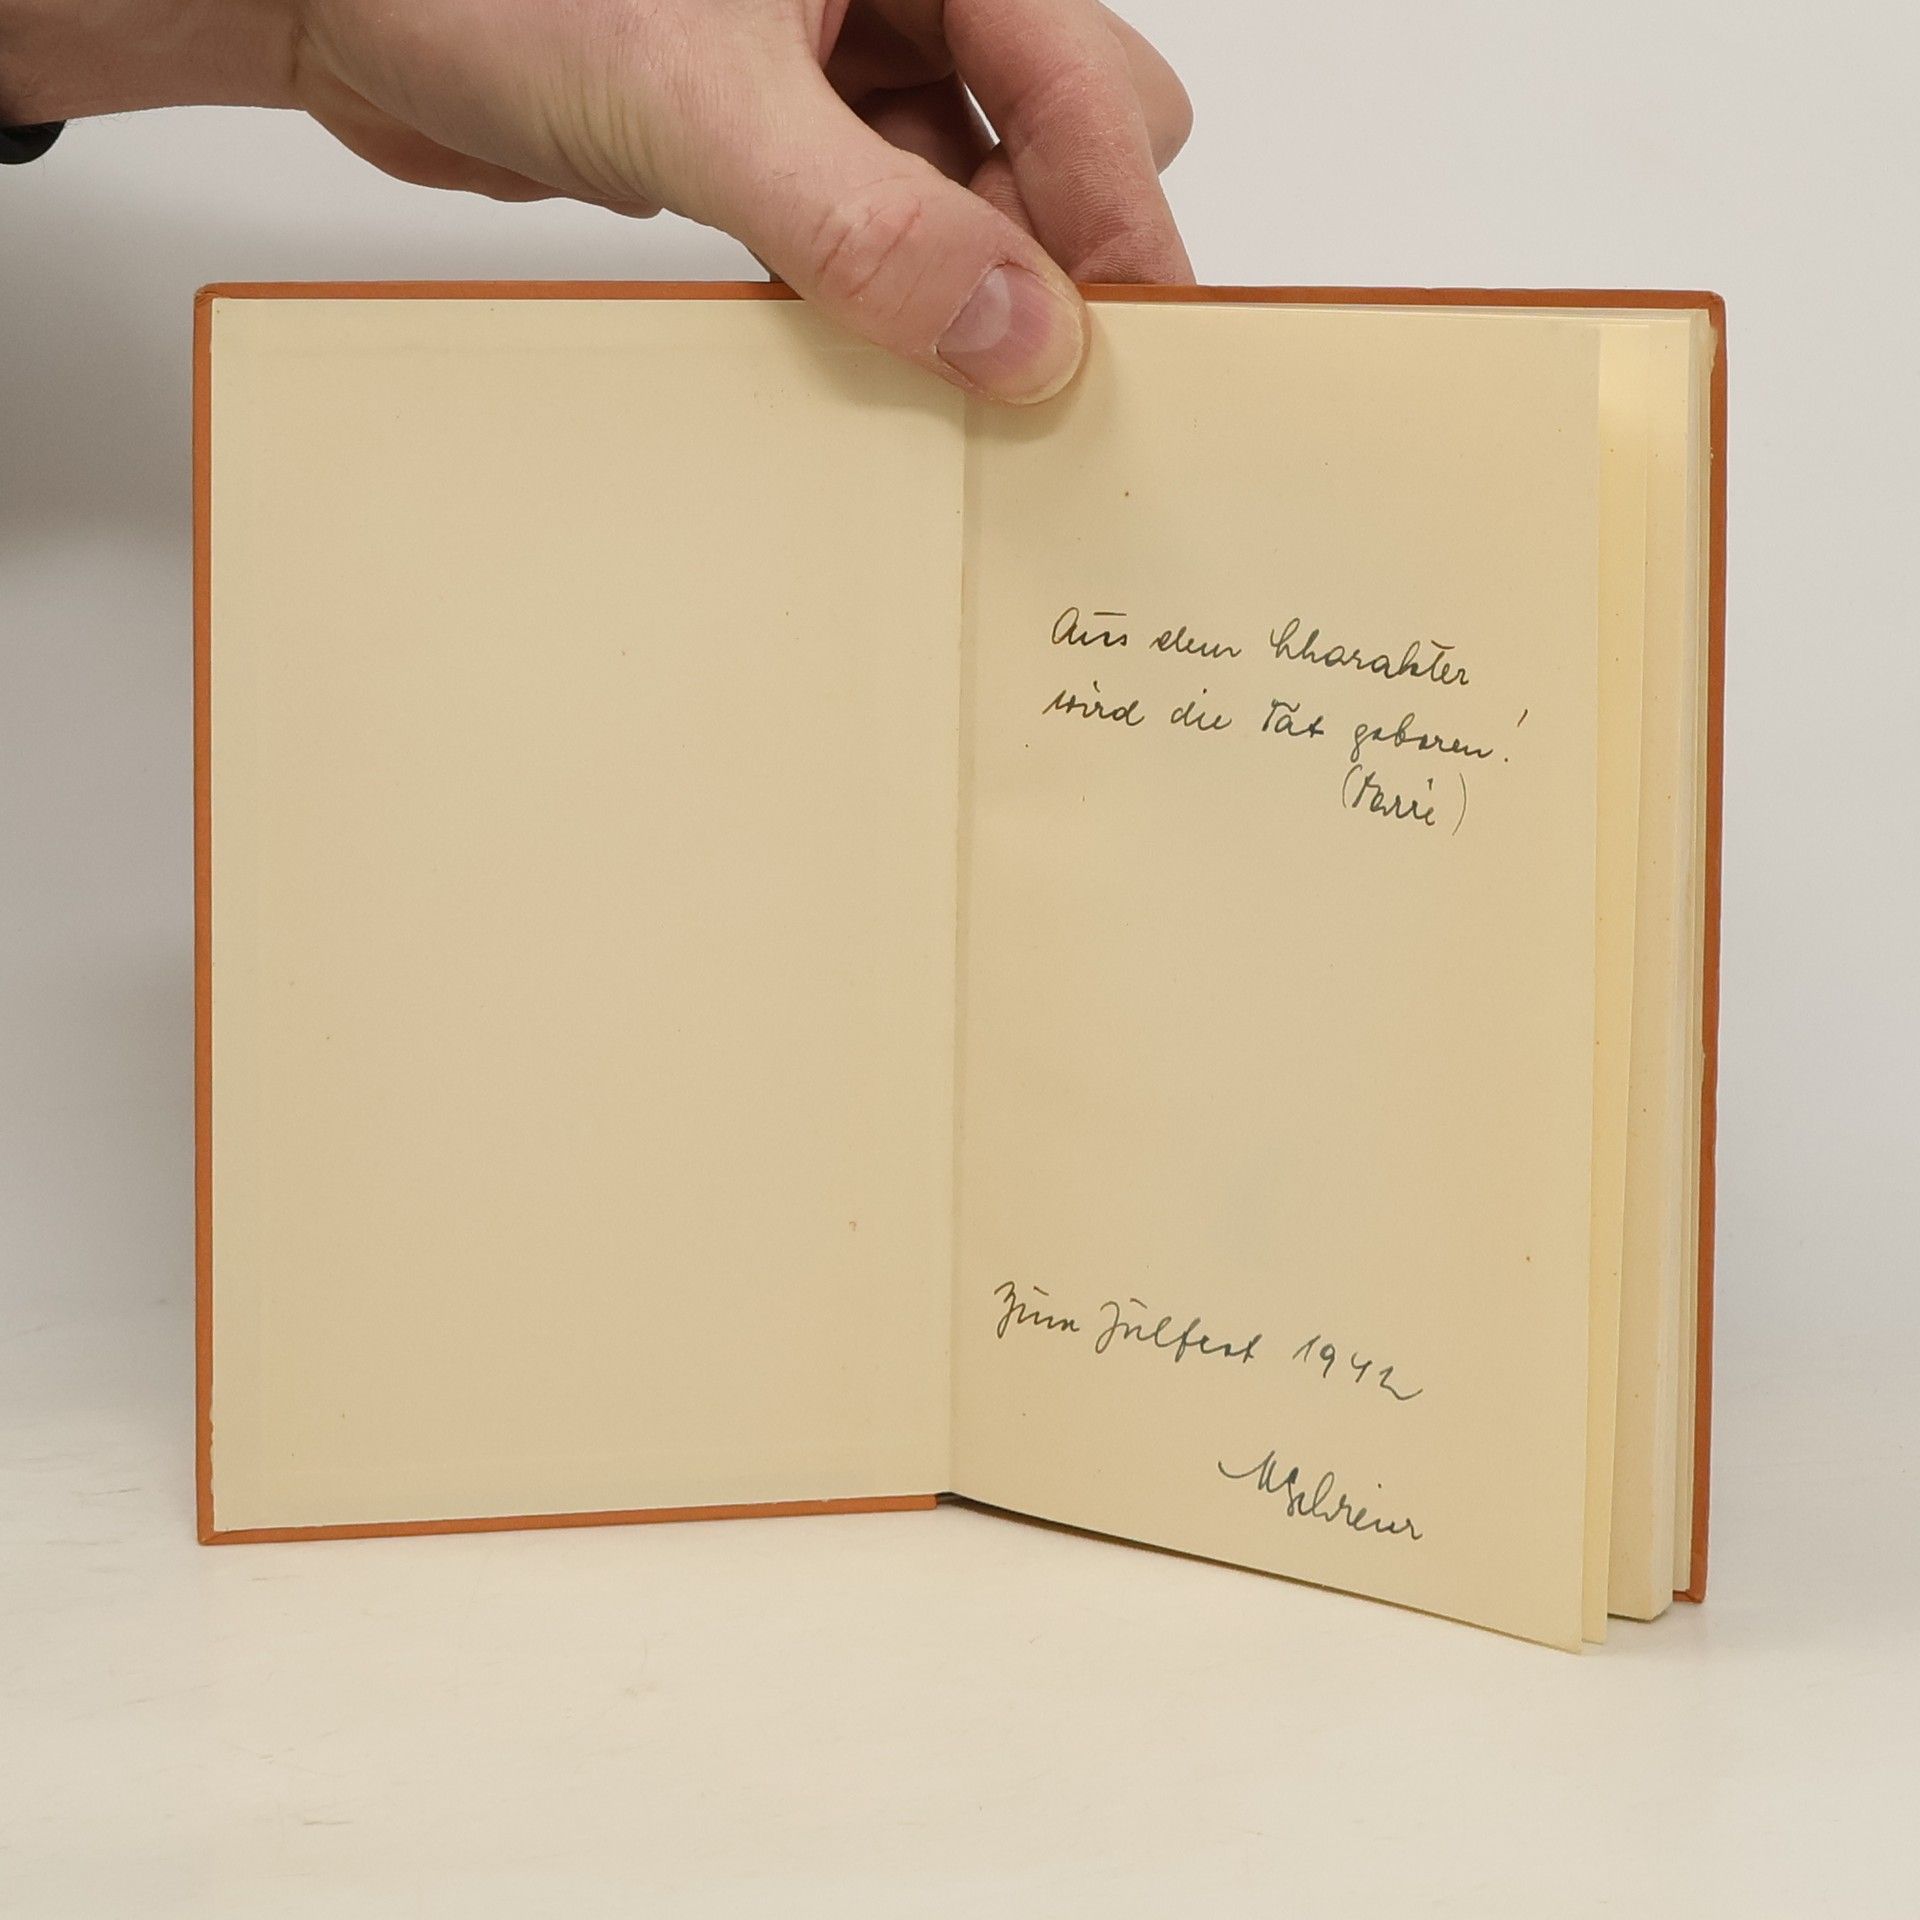 Aus dem Charakter
wird die Tat geboren!
Zum Julfest 1942